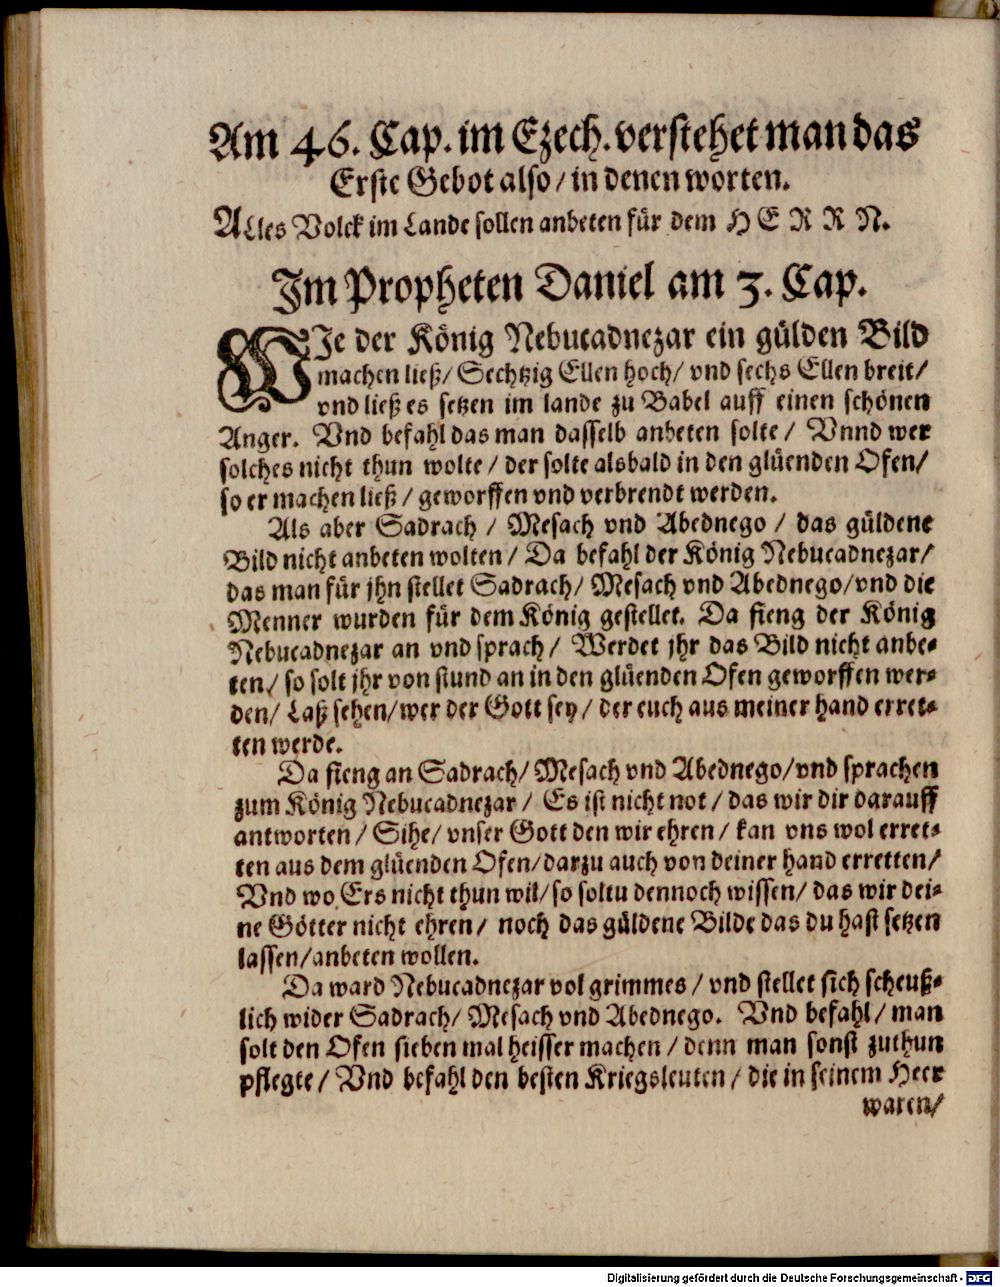 Am 46. Cap. im Ezech. verstehet man das
Erste Gebot also / in denen worten.
ALles Volck im Lande sollen anbeten für dem H E R R N.
Im Propheten Daniel am 3. Cap.
WIe der König Nebucadnezar ein gülden Bild
machen ließ / Sechtzig Ellen hoch / vnd sechs Ellen breit /
vnd ließ es setzen im lande zu Babel auff einen schönen
Anger. Vnd befahl das man dasselb anbeten solte / Vnnd wer
solches nicht thun wolte / der solte alsbald in den glüenden Ofen /
so er machen ließ / geworffen vnd verbrendt werden.
Als aber Sadrach / Mesach vnd Abednego / das güldene
Bild nicht anbeten wolten / Da befahl der König Nebucadnezar /
das man für jhn stellet Sadrach / Mesach vnd Abednego / vnd die
Menner wurden für dem König gestellet. Da fieng der König
Nebucadnezar an vnd sprach / Werdet jhr das Bild nicht anbe-
ten / so solt jhr von stund an in den glüenden Ofen geworffen wer-
den / Laß sehen / wer der Gott sey / der euch aus meiner hand erret-
ten werde.
Da fieng an Sadrach / Mesach vnd Abednego / vnd sprachen
zum König Nebucadnezar / Es ist nicht not / das wir dir darauff
antworten / Sihe / vnser Gott den wir ehren / kan vns wol erret-
ten aus dem glüenden Ofen / darzu auch von deiner hand erretten /
Vnd wo Ers nicht thun wil / so soltu dennoch wissen / das wir dei-
ne Götter nicht ehren / noch das güldene Bilde das du hast setzen
lassen / anbeten wollen.
Da ward Nebucadnezar vol grimmes / vnd stellet sich scheuß-
lich wider Sadrach / Mesach vnd Abednego. Vnd befahl / man
solt den Ofen sieben mal heisser machen / denn man sonst zuthun
pflegte / Vnd befahl den besten Kriegsleuten / die in seinem Heer
waren /
Digitalisierung gefördert durch die Deutsche Forschungsgemeinschaft - DFG